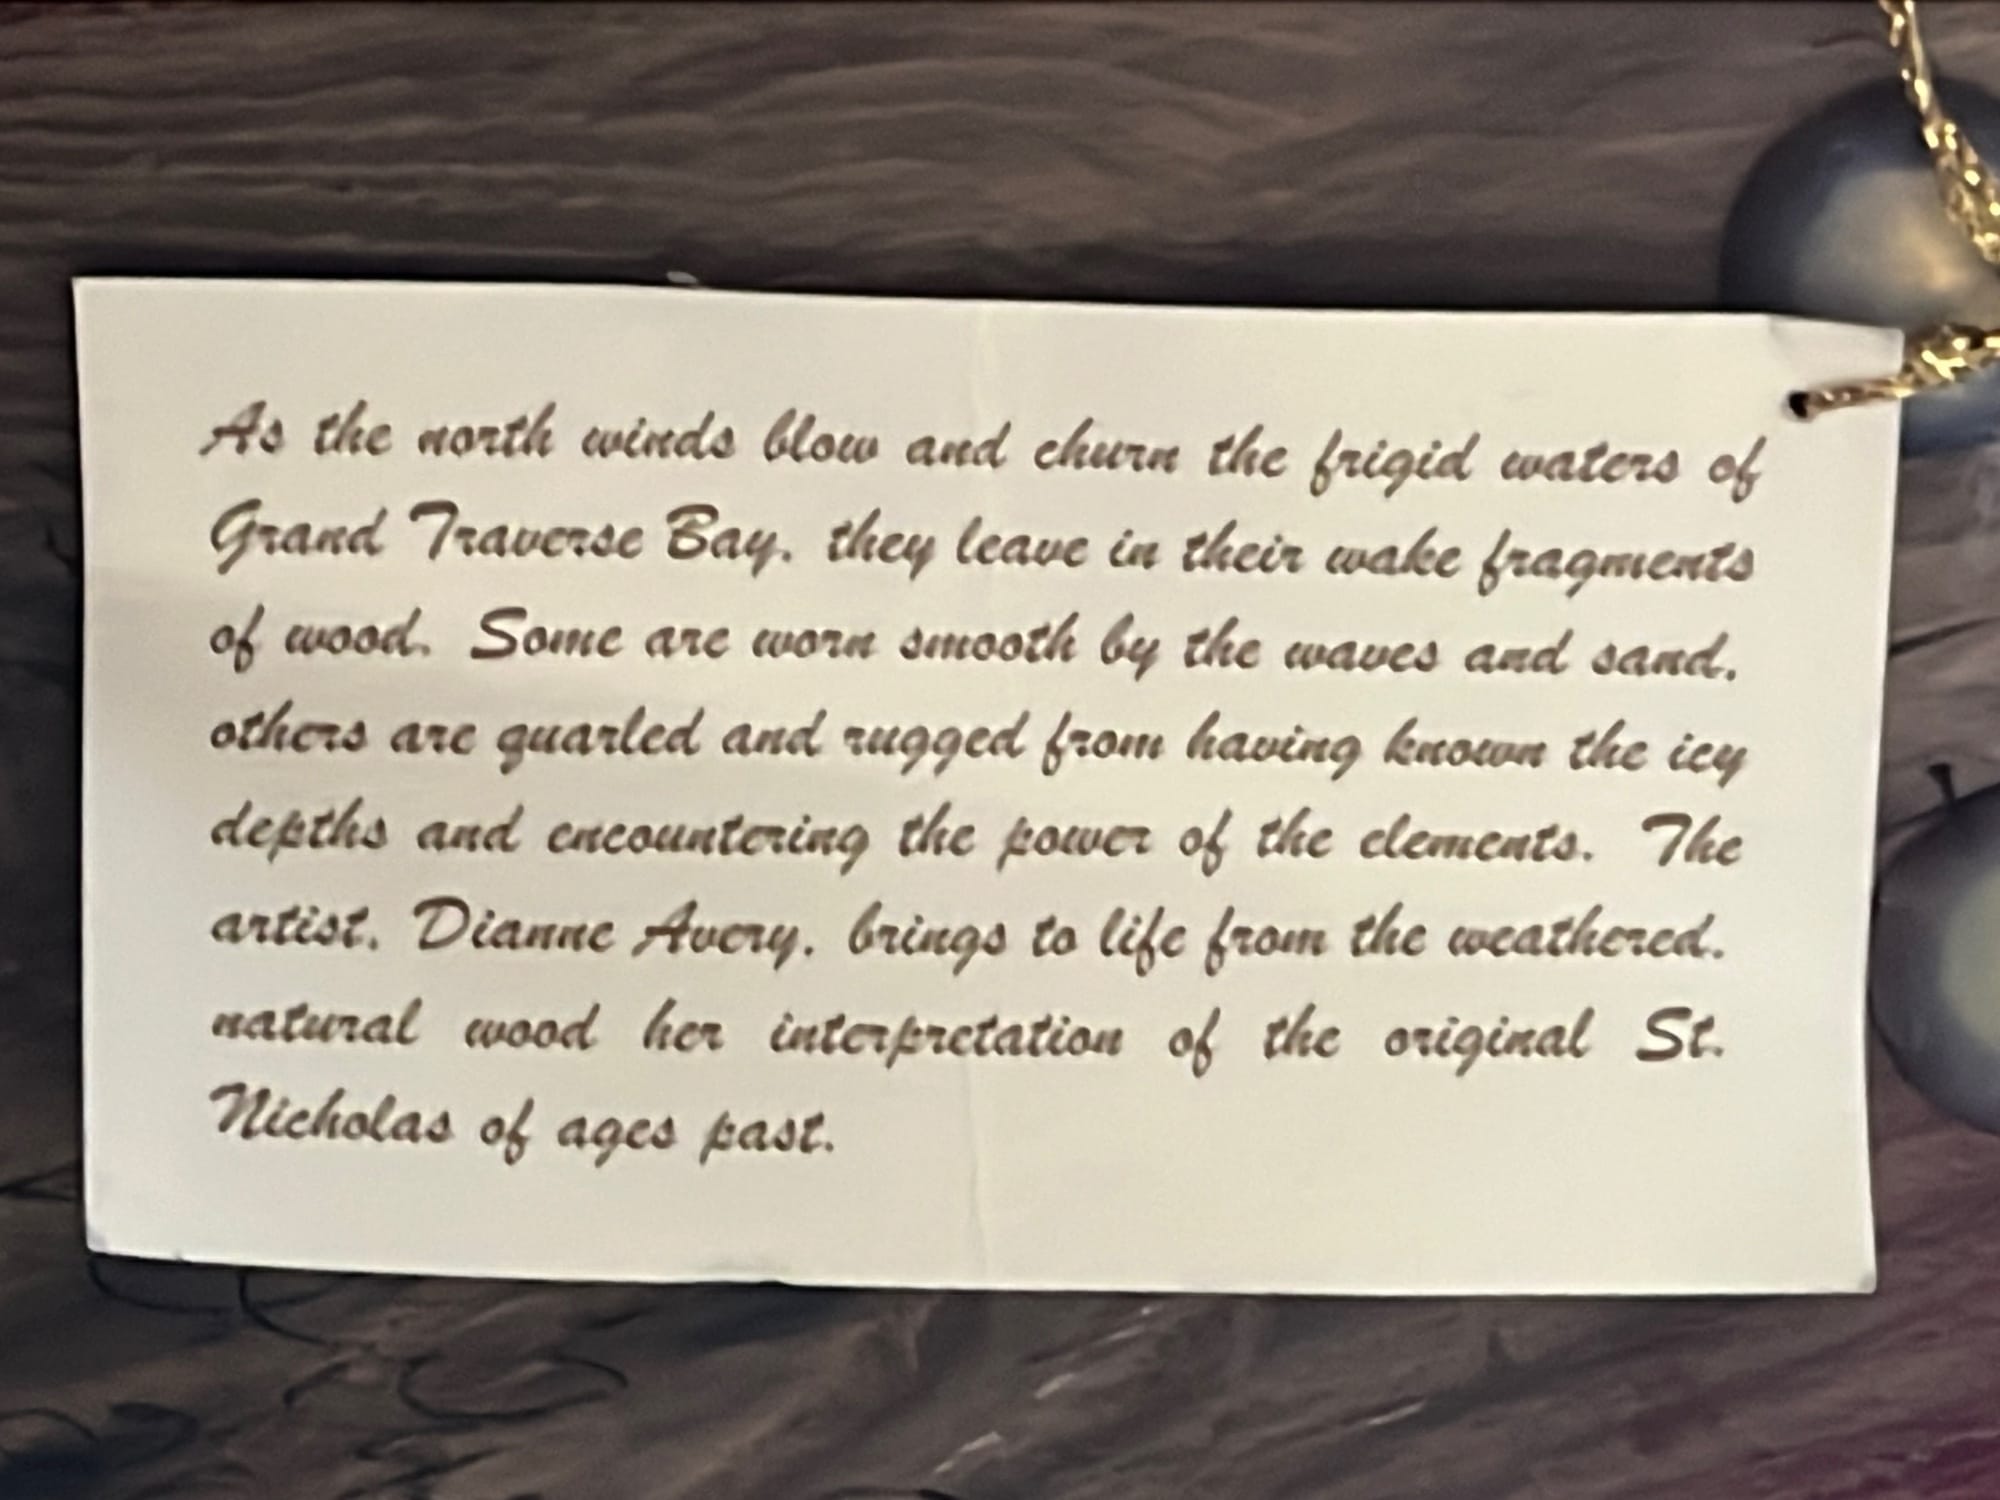 As the north winds blow and churn the frigid waters of
Grand Traverse Bay, they leave in their wake fragments
of wood. Some are worn smooth by the waves and sand,
others are guarled and rugged from having known the icy
depths and encountering the power of the elements. The
artist, Dianne Avery, brings to life from the weathered,
natural wood her interpretation of the original St.
Nicholas of ages past.